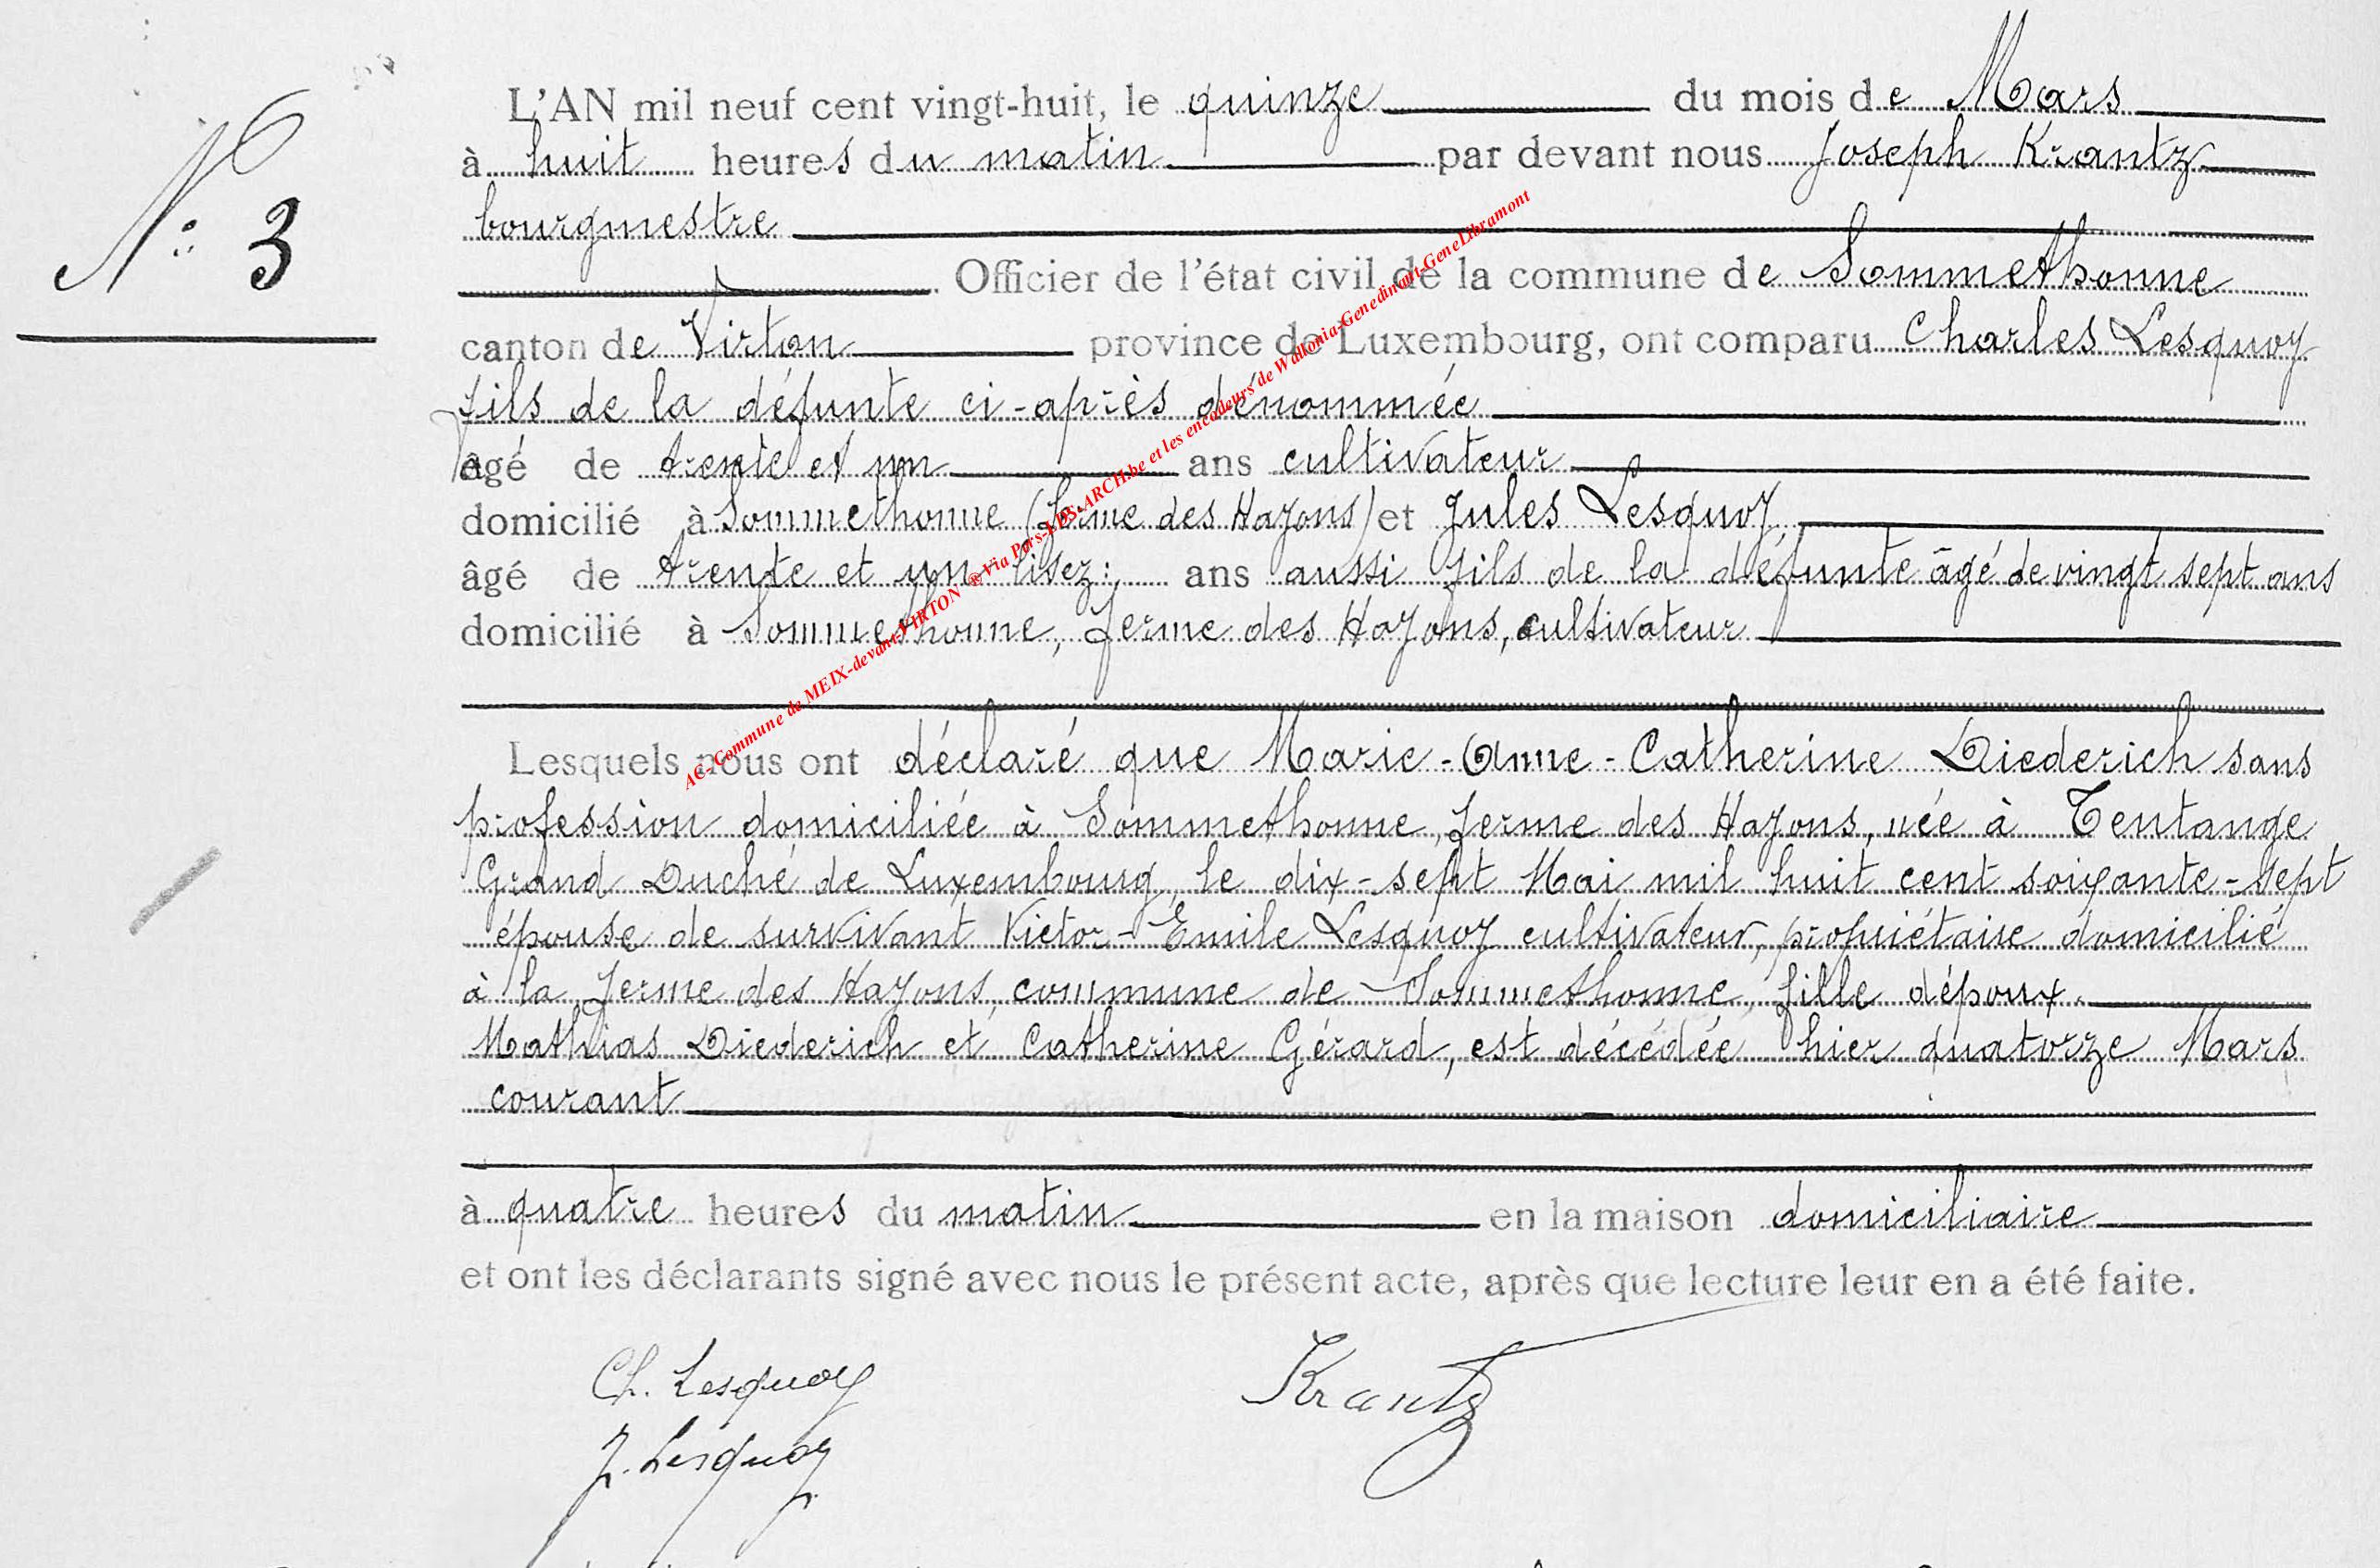 N° 3
L'AN mil neuf cent vingt-huit, le quinze du mois de Mars
à huit heures du matin par devant nous Joseph Krantz
bourgmestre
Officier de l'état civil de la commune de Sommethonne
canton de Virton province de Luxembourg, ont comparu Charles Lesquoy
fils de la défunte ci-après dénommée
âgé de trente et un ans cultivateur
domicilié à Sommethonne (ferme des Hayons) et Jules Lesquoy
âgé de trente et un lisez: ans aussi fils de la défunte âgé de vingt sept ans
domicilié à Sommethonne, ferme des Hayons, cultivateur
Lesquels nous ont déclaré que Marie-Anne-Catherine Diederich sans
profession domiciliée à Sommethonne, ferme des Hayons, née à Tentange
Grand Duché de Luxembourg, le dix-sept Mai mil huit cent soixante-sept
épouse de survivant Victor-Émile Lesquoy cultivateur, propriétaire domicilié
à la ferme des Hayons, commune de Sommethonne, fille d'époux
Mathias Diederich et Catherine Gérard, est décédée hier quatorze Mars
courant
à quatre heures du matin en la maison domiciliaire
et ont les déclarants signé avec nous le présent acte, après que lecture leur en a été faite.
Ch. Lesquoy Krantz
J. Lesquoy
AC-Commune de MEIX-devant-VIRTON ® Via Pors-LDS-ARCH.be et les encodeurs de Wallonia-Genedinant-GeneLibramont